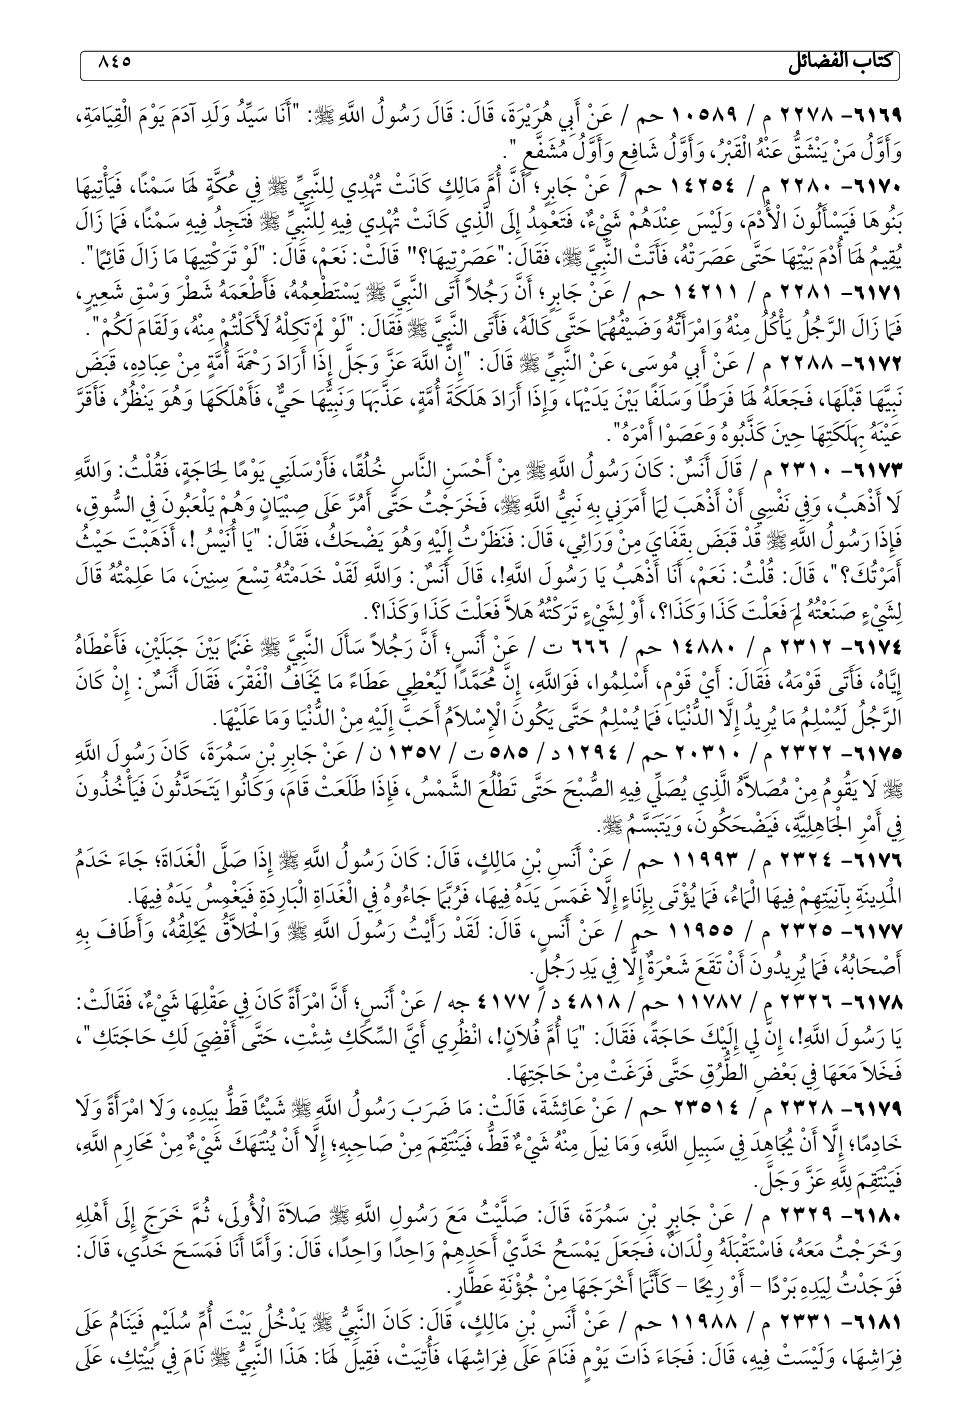 كتاب الفضائل ٨٤٥
٦١٦٩- ٢٢٧٨ م / ١٠٥٨٩ حم / عَنْ أَبِي هُرَيْرَةَ، قَالَ: قَالَ رَسُولُ اللَّهِ ﷺ: "أَنَا سَيِّدُ وَلَدِ آدَمَ يَوْمَ الْقِيَامَةِ،
وَأَوَّلُ مَنْ يَنْشَقُّ عَنْهُ الْقَبْرُ، وَأَوَّلُ شَافِعٍ وَأَوَّلُ مُشَفَّعٍ ".
٦١٧٠- ٢٢٨٠ م / ١٤٢٥٤ حم / عَنْ جَابِرٍ؛ أَنَّ أُمَّ مَالِكٍ كَانَتْ تُهْدِي لِلنَّبِيِّ ﷺ فِي عُكَّةٍ لَهَا سَمْنًا، فَيَأْتِيهَا
بَنُوهَا فَيَسْأَلُونَ الْأُدْمَ، وَلَيْسَ عِنْدَهُمْ شَيْءٌ، فَتَعْمِدُ إِلَى الَّذِي كَانَتْ تُهْدِي فِيهِ لِلنَّبِيِّ ﷺ فَتَجِدُ فِيهِ سَمْنًا، فَمَا زَالَ
يُقِيمُ لَهَا أُدْمَ بَيْتِهَا حَتَّى عَصَرَتْهُ، فَأَتَتْ النَّبِيَّ ﷺ، فَقَالَ:"عَصَرْتِيهَا؟" قَالَتْ: نَعَمْ، قَالَ: "لَوْ تَرَكْتِيهَا مَا زَالَ قَائِمًا".
٦١٧١- ٢٢٨١ م / ١٤٢١١ حم / عَنْ جَابِرٍ؛ أَنَّ رَجُلاً أَتَى النَّبِيَّ ﷺ يَسْتَطْعِمُهُ، فَأَطْعَمَهُ شَطْرَ وَسْقِ شَعِيرٍ،
فَمَا زَالَ الرَّجُلُ يَأْكُلُ مِنْهُ وَامْرَأَتُهُ وَضَيْفُهُمَا حَتَّى كَالَهُ، فَأَتَى النَّبِيَّ ﷺ فَقَالَ: "لَوْ لَمْ تَكِلْهُ لَأَكَلْتُمْ مِنْهُ، وَلَقَامَ لَكُمْ".
٦١٧٢- ٢٢٨٨ م / عَنْ أَبِي مُوسَى، عَنْ النَّبِيِّ ﷺ قَالَ: "إِنَّ اللَّهَ عَزَّ وَجَلَّ إِذَا أَرَادَ رَحْمَةَ أُمَّةٍ مِنْ عِبَادِهِ، قَبَضَ
نَبِيَّهَا قَبْلَهَا، فَجَعَلَهُ لَهَا فَرَطًا وَسَلَفًا بَيْنَ يَدَيْهَا، وَإِذَا أَرَادَ هَلَكَةَ أُمَّةٍ، عَذَّبَهَا وَنَبِيُّهَا حَيٌّ، فَأَهْلَكَهَا وَهُوَ يَنْظُرُ، فَأَقَرَّ
عَيْنَهُ بِهَلَكَتِهَا حِينَ كَذَّبُوهُ وَعَصَوْا أَمْرَهُ".
٦١٧٣- ٢٣١٠ م / قَالَ أَنَسٌ: كَانَ رَسُولُ اللَّهِ ﷺ مِنْ أَحْسَنِ النَّاسِ خُلُقًا، فَأَرْسَلَنِي يَوْمًا لِحَاجَةٍ، فَقُلْتُ: وَاللَّهِ
لَا أَذْهَبُ، وَفِي نَفْسِي أَنْ أَذْهَبَ لِمَا أَمَرَنِي بِهِ نَبِيُّ اللَّهِ ﷺ، فَخَرَجْتُ حَتَّى أَمُرَّ عَلَى صِبْيَانٍ وَهُمْ يَلْعَبُونَ فِي السُّوقِ،
فَإِذَا رَسُولُ اللَّهِ ﷺ قَدْ قَبَضَ بِقَفَايَ مِنْ وَرَائِي، قَالَ: فَنَظَرْتُ إِلَيْهِ وَهُوَ يَضْحَكُ، فَقَالَ: "يَا أُنَيْسُ!، أَذَهَبْتَ حَيْثُ
أَمَرْتُكَ؟"، قَالَ: قُلْتُ: نَعَمْ، أَنَا أَذْهَبُ يَا رَسُولَ اللَّهِ!، قَالَ أَنَسٌ: وَاللَّهِ لَقَدْ خَدَمْتُهُ تِسْعَ سِنِينَ، مَا عَلِمْتُهُ قَالَ
لِشَيْءٍ صَنَعْتُهُ لِمَ فَعَلْتَ كَذَا وَكَذَا؟، أَوْ لِشَيْءٍ تَرَكْتُهُ هَلاَّ فَعَلْتَ كَذَا وَكَذَا؟.
٦١٧٤- ٢٣١٢ م / ١٤٨٨٠ حم / ٦٦٦ ت / عَنْ أَنَسٍ؛ أَنَّ رَجُلاً سَأَلَ النَّبِيَّ ﷺ غَنَمًا بَيْنَ جَبَلَيْنِ، فَأَعْطَاهُ
إِيَّاهُ، فَأَتَى قَوْمَهُ، فَقَالَ: أَيْ قَوْمِ، أَسْلِمُوا، فَوَاللَّهِ، إِنَّ مُحَمَّدًا لَيُعْطِي عَطَاءً مَا يَخَافُ الْفَقْرَ، فَقَالَ أَنَسٌ: إِنْ كَانَ
الرَّجُلُ لَيُسْلِمُ مَا يُرِيدُ إِلَّا الدُّنْيَا، فَمَا يُسْلِمُ حَتَّى يَكُونَ الْإِسْلاَمُ أَحَبَّ إِلَيْهِ مِنْ الدُّنْيَا وَمَا عَلَيْهَا.
٦١٧٥- ٢٣٢٢ م / ٢٠٣١٠ حم / ١٢٩٤ د / ٥٨٥ ت / ١٣٥٧ ن / عَنْ جَابِرِ بْنِ سَمُرَةَ، كَانَ رَسُولَ اللَّهِ
ﷺ لَا يَقُومُ مِنْ مُصَلاَّهُ الَّذِي يُصَلِّي فِيهِ الصُّبْحَ حَتَّى تَطْلُعَ الشَّمْسُ، فَإِذَا طَلَعَتْ قَامَ، وَكَانُوا يَتَحَدَّثُونَ فَيَأْخُذُونَ
فِي أَمْرِ الْجَاهِلِيَّةِ، فَيَضْحَكُونَ، وَيَتَبَسَّمُ ﷺ.
٦١٧٦- ٢٣٢٤ م / ١١٩٩٣ حم / عَنْ أَنَسِ بْنِ مَالِكٍ، قَالَ: كَانَ رَسُولُ اللَّهِ ﷺ إِذَا صَلَّى الْغَدَاةَ؛ جَاءَ خَدَمُ
الْمَدِينَةِ بِآنِيَتِهِمْ فِيهَا الْمَاءُ، فَمَا يُؤْتَى بِإِنَاءٍ إِلَّا غَمَسَ يَدَهُ فِيهَا، فَرُبَّمَا جَاءُوهُ فِي الْغَدَاةِ الْبَارِدَةِ فَيَغْمِسُ يَدَهُ فِيهَا.
٦١٧٧- ٢٣٢٥ م / ١١٩٥٥ حم / عَنْ أَنَسٍ، قَالَ: لَقَدْ رَأَيْتُ رَسُولَ اللَّهِ ﷺ وَالْحَلاَّقُ يَحْلِقُهُ، وَأَطَافَ بِهِ
أَصْحَابُهُ، فَمَا يُرِيدُونَ أَنْ تَقَعَ شَعْرَةٌ إِلَّا فِي يَدِ رَجُلٍ.
٦١٧٨- ٢٣٢٦ م / ١١٧٨٧ حم / ٤٨١٨ د / ٤١٧٧ جه / عَنْ أَنَسٍ؛ أَنَّ امْرَأَةً كَانَ فِي عَقْلِهَا شَيْءٌ، فَقَالَتْ:
يَا رَسُولَ اللَّهِ!، إِنَّ لِي إِلَيْكَ حَاجَةً، فَقَالَ: "يَا أُمَّ فُلاَنٍ!، انْظُرِي أَيَّ السِّكَكِ شِئْتِ، حَتَّى أَقْضِيَ لَكِ حَاجَتَكِ"،
فَخَلاَ مَعَهَا فِي بَعْضِ الطُّرُقِ حَتَّى فَرَغَتْ مِنْ حَاجَتِهَا.
٦١٧٩- ٢٣٢٨ م / ٢٣٥١٤ حم / عَنْ عَائِشَةَ، قَالَتْ: مَا ضَرَبَ رَسُولُ اللَّهِ ﷺ شَيْئًا قَطُّ بِيَدِهِ، وَلَا امْرَأَةً وَلَا
خَادِمًا؛ إِلَّا أَنْ يُجَاهِدَ فِي سَبِيلِ اللَّهِ، وَمَا نِيلَ مِنْهُ شَيْءٌ قَطُّ، فَيَنْتَقِمَ مِنْ صَاحِبِهِ؛ إِلَّا أَنْ يُنْتَهَكَ شَيْءٌ مِنْ مَحَارِمِ اللَّهِ،
فَيَنْتَقِمَ لِلَّهِ عَزَّ وَجَلَّ.
٦١٨٠- ٢٣٢٩ م / عَنْ جَابِرِ بْنِ سَمُرَةَ، قَالَ: صَلَّيْتُ مَعَ رَسُولِ اللَّهِ ﷺ صَلاَةَ الْأُولَى، ثُمَّ خَرَجَ إِلَى أَهْلِهِ
وَخَرَجْتُ مَعَهُ، فَاسْتَقْبَلَهُ وِلْدَانٌ، فَجَعَلَ يَمْسَحُ خَدَّيْ أَحَدِهِمْ وَاحِدًا وَاحِدًا، قَالَ: وَأَمَّا أَنَا فَمَسَحَ خَدِّي، قَالَ:
فَوَجَدْتُ لِيَدِهِ بَرْدًا – أَوْ رِيحًا – كَأَنَّمَا أَخْرَجَهَا مِنْ جُؤْنَةِ عَطَّارٍ.
٦١٨١- ٢٣٣١ م / ١١٩٨٨ حم / عَنْ أَنَسِ بْنِ مَالِكٍ، قَالَ: كَانَ النَّبِيُّ ﷺ يَدْخُلُ بَيْتَ أُمِّ سُلَيْمٍ فَيَنَامُ عَلَى
فِرَاشِهَا، وَلَيْسَتْ فِيهِ، قَالَ: فَجَاءَ ذَاتَ يَوْمٍ فَنَامَ عَلَى فِرَاشِهَا، فَأُتِيَتْ، فَقِيلَ لَهَا: هَذَا النَّبِيُّ ﷺ نَامَ فِي بَيْتِكِ، عَلَى